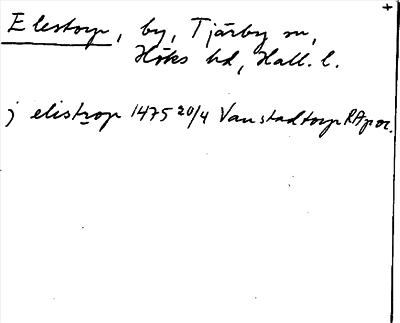 Elestorp, by, Tjärby sn,
Höks hd, Hall. l.
j elistrop 1475 20/4 Vanstadtorp RAp or.